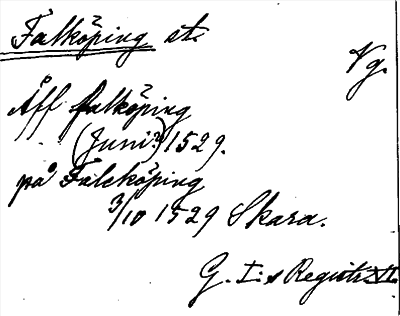 Falköping st.
Vg.
Åff falköping
(Juni?) 1529.
på Faleköping
3/10 1529 Skara.
G. I:s Registr. VI.